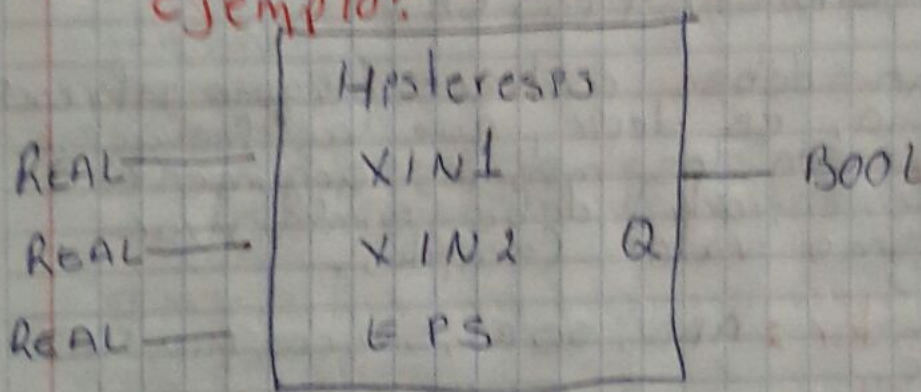 Ejemplo:
Histeresis
REAL XIN1 BOOL
REAL XIN2 Q
REAL EPS